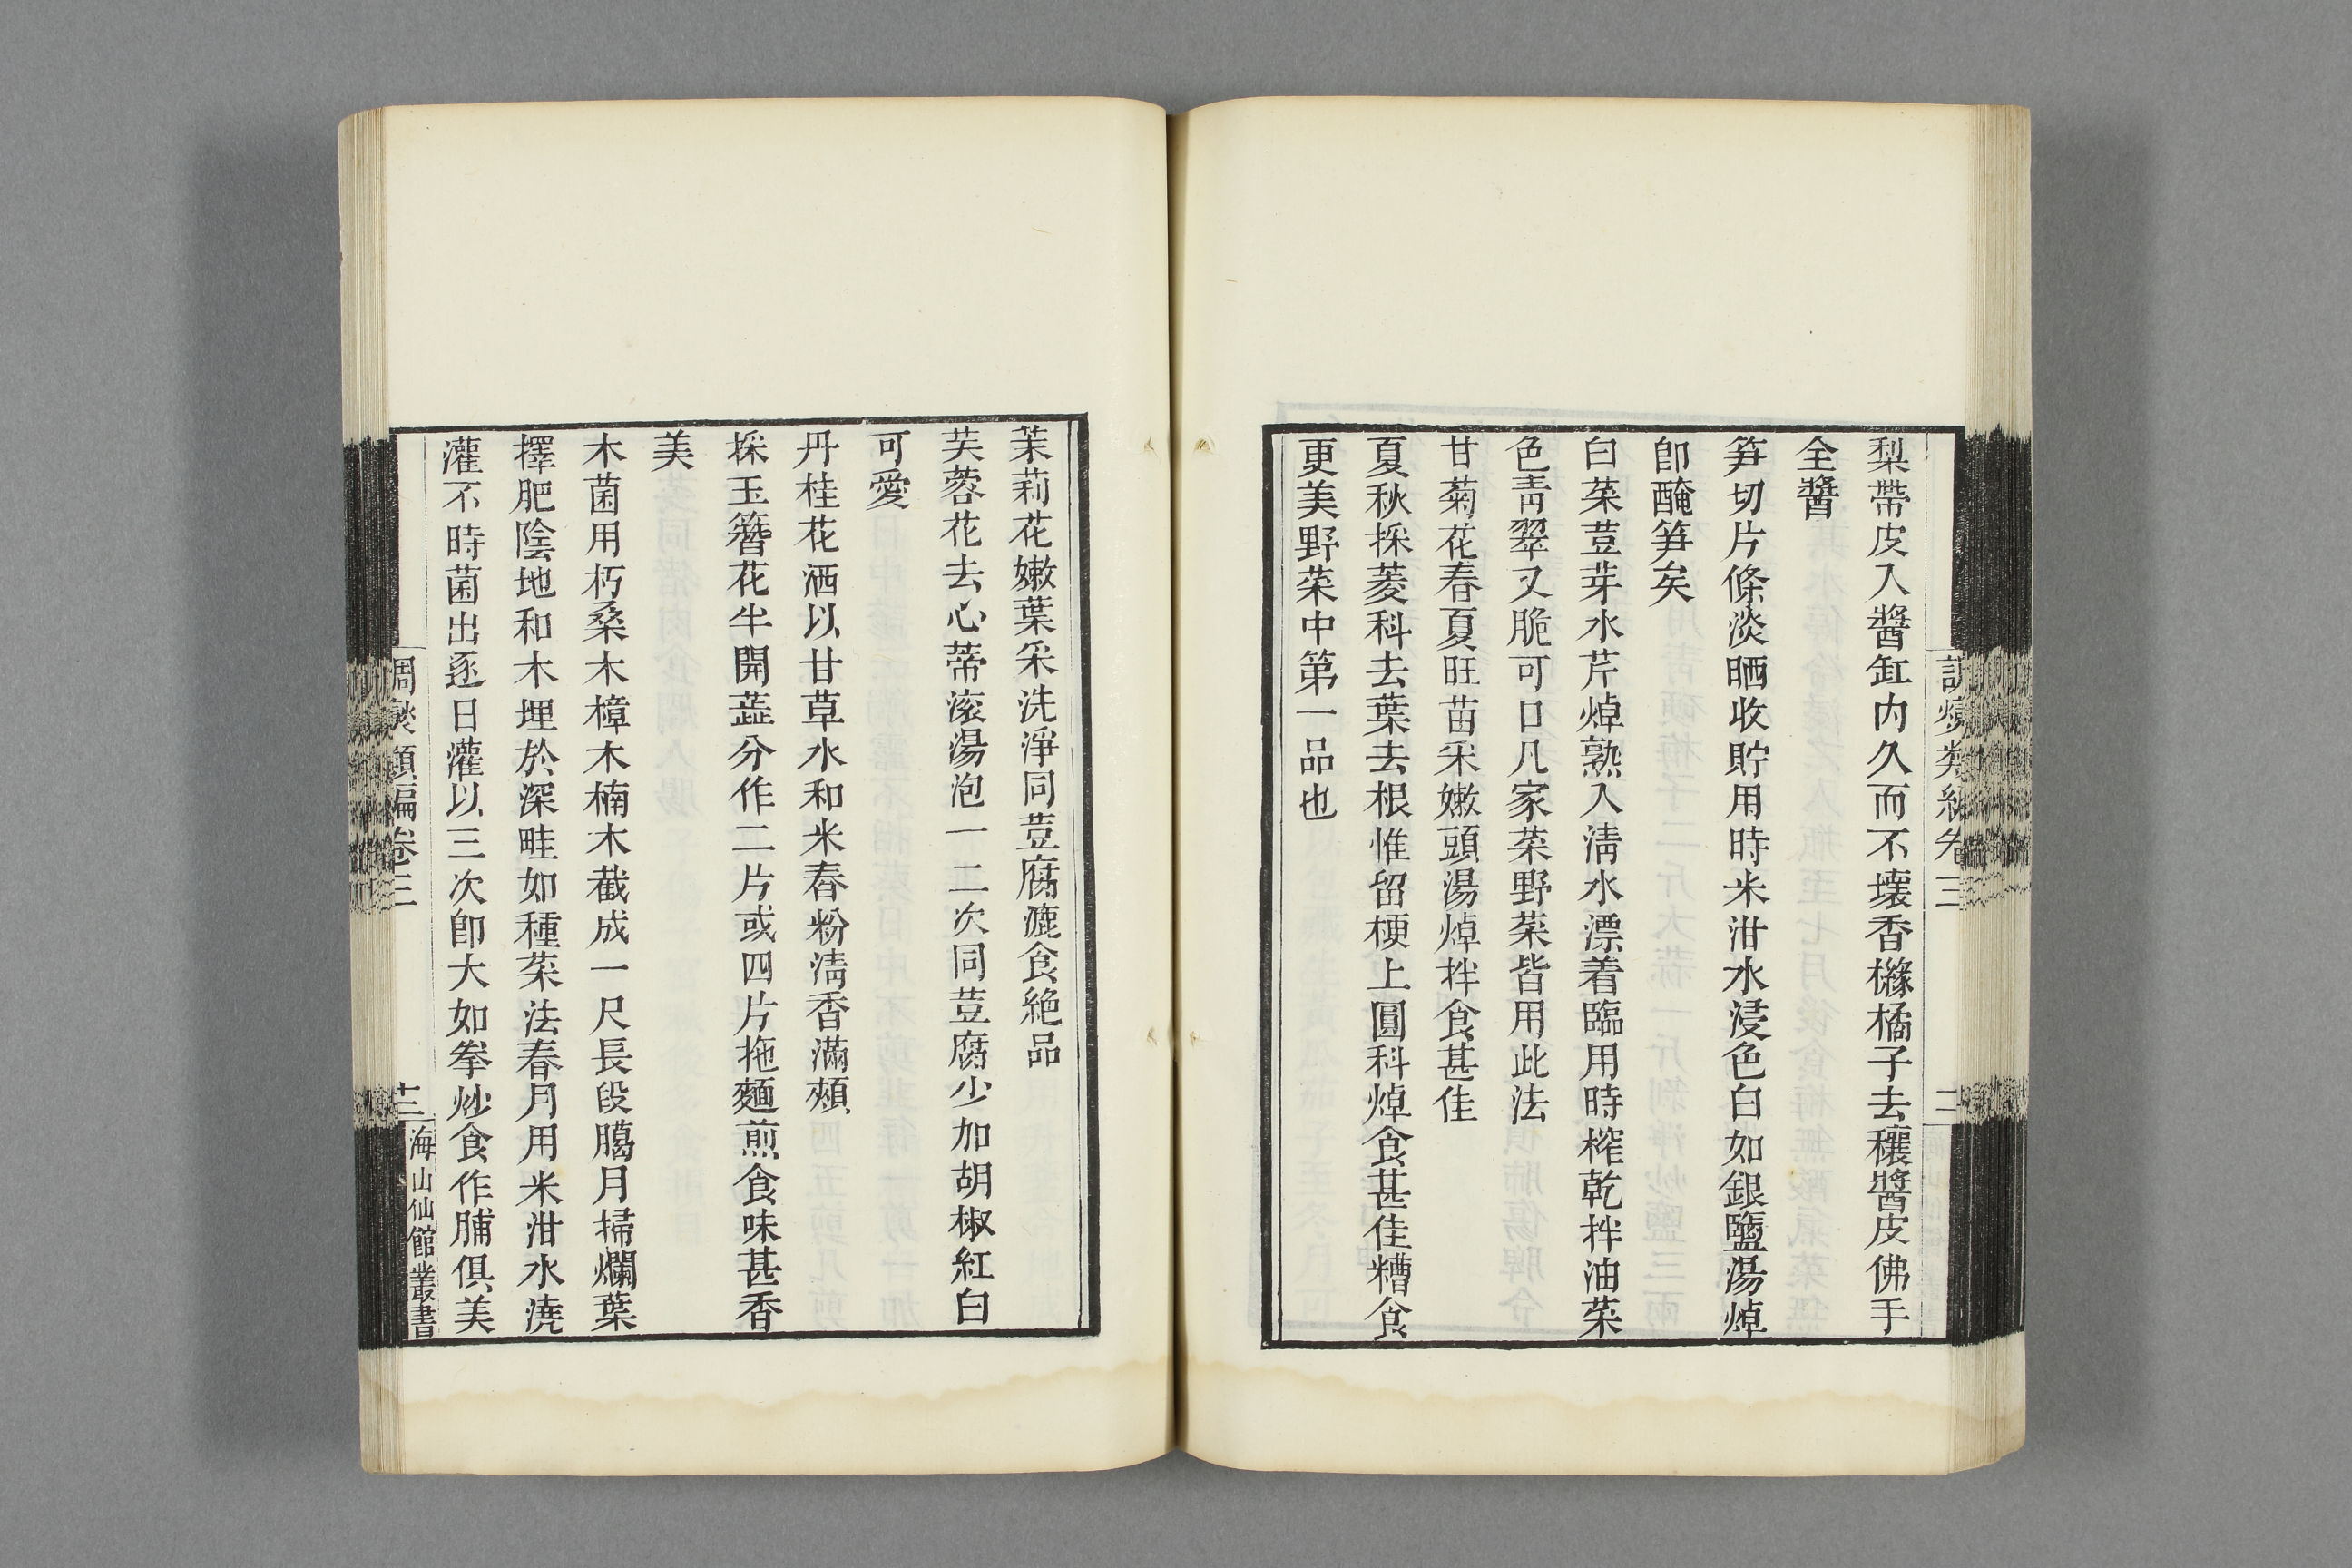 梨帶皮入醬缸內久而不壞香櫞橘子去穰醬皮佛手
全醬
笋切片條淡晒收貯用時米泔水浸色白如銀鹽湯焯
卽醃笋矣
白菜荳芽水芹焯熟入淸水漂着臨用時榨乾拌油菜
色靑翠又脆可口凡家菜野菜皆用此法
甘菊花春夏旺苗采嫩頭湯焯拌食甚佳
夏秋採菱科去葉去根惟留梗上圓科焯食甚佳糟食
更美野菜中第一品也
茉莉花嫩葉采洗淨同荳腐漉食絶品
芙蓉花去心蒂滚湯泡一二次同荳腐少加胡椒紅白
可愛
丹桂花洒以甘草水和米舂粉淸香滿頰
採玉簪花半開蕋分作二片或四片拖麵煎食味甚香
美
木菌用朽桑木樟木楠木截成一尺長段臈月掃爛葉
擇肥陰地和木埋於深畦如種菜法春月用米泔水澆
灌不時菌出逐日灌以三次卽大如拳炒食作脯俱美
調燮類編卷三
海山仙館叢書